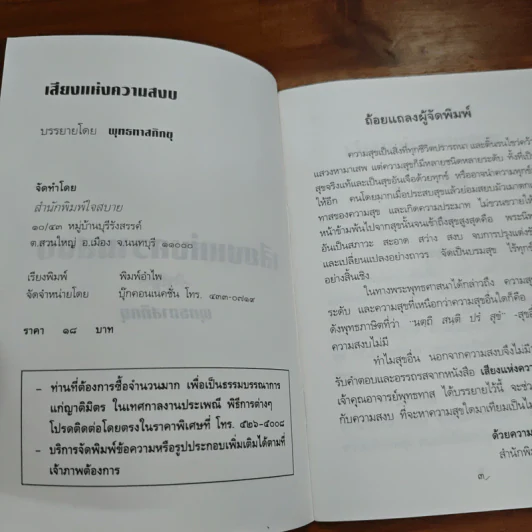 เสียงแห่งความสงบ
บรรยายโดย พุทธทาสภิกขุ
จัดทำโดย
สำนักพิมพ์ใจสบาย
๑๐/๔๓ หมู่บ้านบุรีรังสรรค์
ต.สวนใหญ่ อ.เมือง จ.นนทบุรี ๑๑๐๐๐
เรียงพิมพ์ พิมพ์อำไพ
จัดจำหน่ายโดย บุ๊กคอนเนคชั่น โทร. ๔๓๓-๐๗๑๙
ราคา ๑๘ บาท
- ท่านที่ต้องการซื้อจำนวนมาก เพื่อเป็นธรรมบรรณาการ
แก่ญาติมิตร ในเทศกาลงานประเพณี พิธีการต่างๆ
โปรดติดต่อโดยตรงในราคาพิเศษที่ โทร. ๕๒๖-๔๐๐๘
- บริการจัดพิมพ์ข้อความหรือรูปประกอบเพิ่มเติมได้ตามที่
เจ้าภาพต้องการ
ถ้อยแถลงผู้จัดพิมพ์
ความสุขเป็นสิ่งที่ทุกชีวิตปรารถนา และดิ้นรนไขว่คว้า
แสวงหามาเสพ แต่ความสุขก็มีหลายชนิดหลายระดับ ทั้งที่เป็น
สุขจริงแท้และเป็นสุขอันเจือด้วยทุกข์ หรืออาจนำความทุกข์
ให้อีก คนโดยมากเมื่อประสบสุขแล้วย่อมสยบมัวเมา
ทาสของความสุข และเกิดความประมาท ไม่ขวนขวาย
หน้าข้ามพ้นไปจากสุขนั้นจนเข้าถึงสุขสูงสุดคือ
อันเป็นสภาวะ สะอาด สว่าง สงบ จบการปรุงแต่ง
และเปลี่ยนแปลงอย่างถาวร จัดเป็นบรมสุข ไร้ทุกข์
อย่างสิ้นเชิง.
ในทางพระพุทธศาสนาได้กล่าวถึง ความสุข
ระดับ และความสุขที่เหนือกว่าความสุขอื่นใดก็คือ
ดังพุทธภาษิตที่ว่า "นตฺถิ สนติ ปรํ สุขํ" -สุขอื่น
ความสงบไม่มี
ทำไมสุขอื่น นอกจากความสงบจึงไม่มี
รับคำตอบและอรรถรสจากหนังสือ เสียงแห่งความ
เจ้าคุณอาจารย์พุทธทาส ได้บรรยายไว้นี้ จะช่วย
กับความสงบ ที่จะหาความสุขใดมาเทียมเป็นไม่
ด้วยความ
สำนักพิม
๓